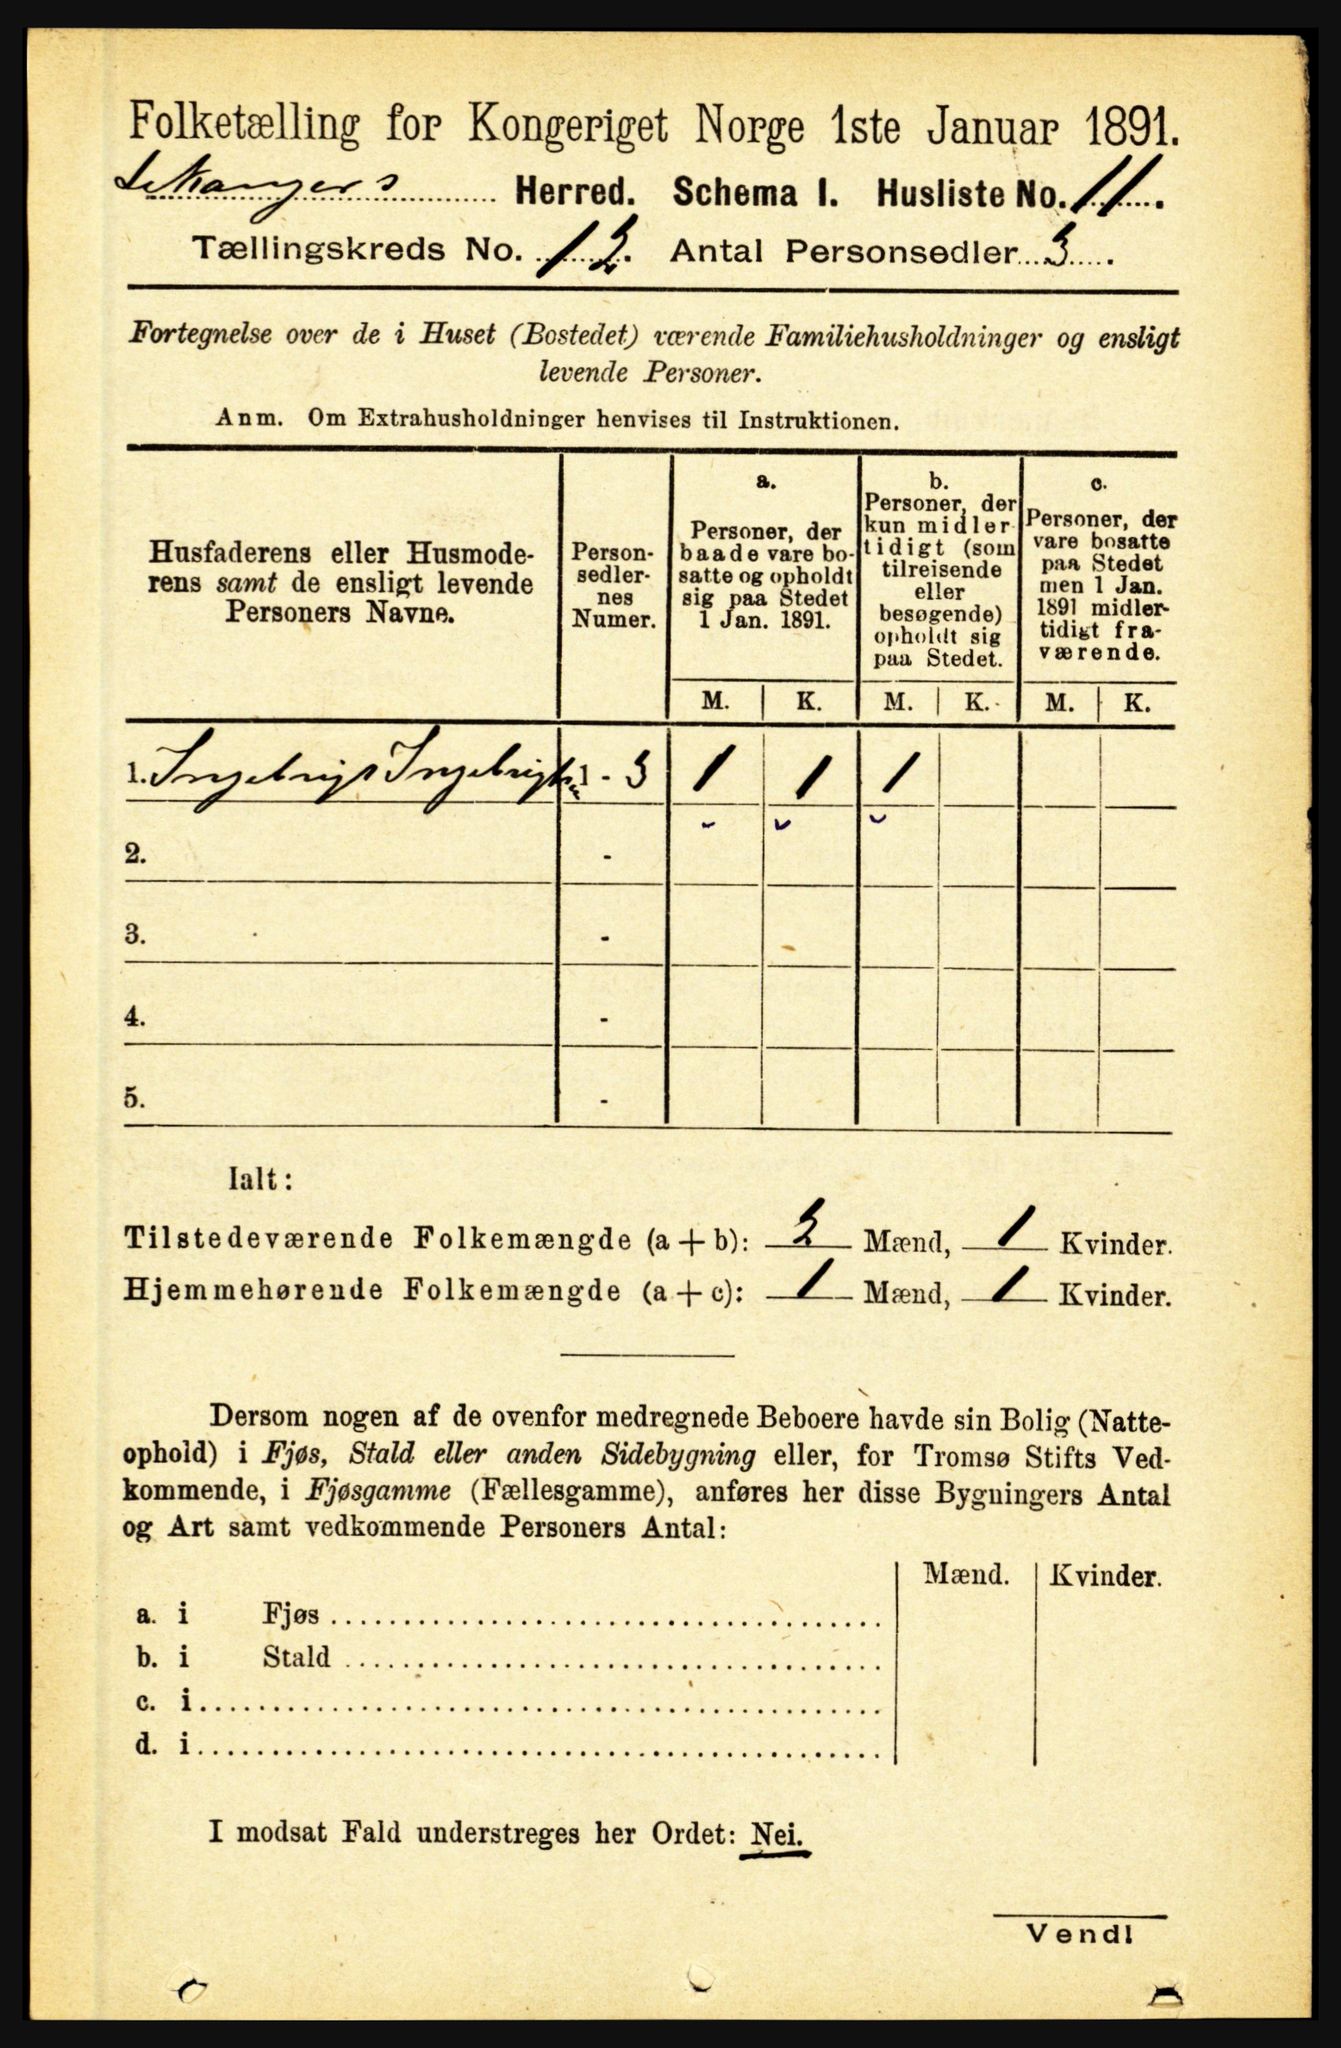 Folketælling for Kongeriget Norge 1ste Januar 1891.
Leikangers Herred. Schema I. Husliste No. 11.
Tællingskreds No. 12. Antal Personsedler 3.
Fortegnelse over de i Huset (Bostedet) værende Familiehusholdninger og ensligt
levende Personer.
Anm. Om Extrahusholdninger henvises til Instruktionen.
Husfaderens eller Husmode-
rens samt de ensligt levende
Personers Navne.
Person-
sedler-
nes
Numer.
a.
Personer, der
baade vare bo-
satte og opholdt
sig paa Stedet
1 Jan. 1891.
b.
Personer, der
kun midler
tidigt (som
tilreisende
eller
besøgende)
opholdt sig
paa Stedet.
c.
Personer, der
vare bosatte
paa Stedet
men 1 Jan.
1891 midler-
tidigt fra-
værende.
M. K. M. K. M. K.
1. Ingebrigt Ingebrigtsen 1 - 3 1 1 1
2. -
3. -
4. -
5. -
Ialt:
Tilstedeværende Folkemængde (a + b): 2 Mænd, 1 Kvinder.
Hjemmehørende Folkemængde (a + c): 1 Mænd, 1 Kvinder.
Dersom nogen af de ovenfor medregnede Beboere havde sin Bolig (Natte-
ophold) i Fjøs, Stald eller anden Sidebygning eller, for Tromsø Stifts Ved-
kommende, i Fjøsgamme (Fællesgamme), anføres her disse Bygningers Antal
og Art samt vedkommende Personers Antal:
Mænd. Kvinder.
a. i Fjøs
b. i Stald
c. i
d. i
I modsat Fald understreges her Ordet: Nei.
Vend!